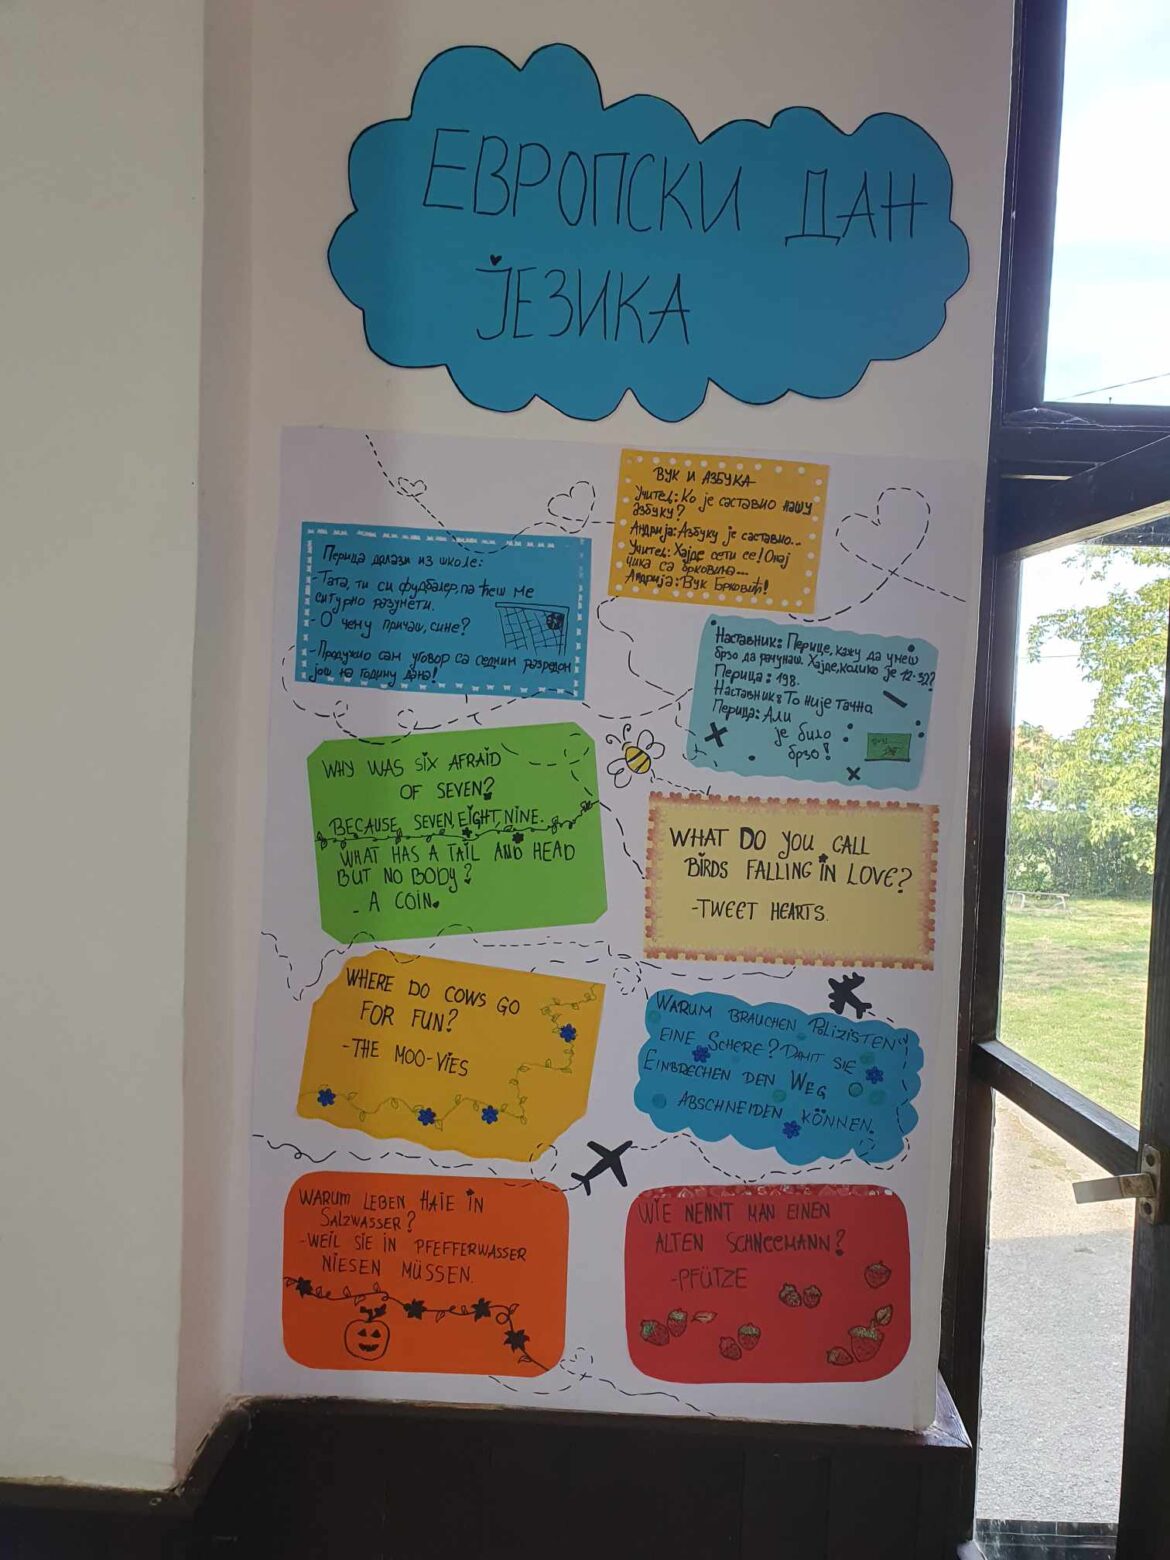 ЕВРОПСКИ ДАН
ЈЕЗИКА
ВУК И АЗБУКА
Учитељ: Ко је саставио нашу
азбуку?
Андрија: Азбуку је саставио...
Учитељ: Хајде сети се! Онај
чика са брковима...
Андрија: Вук Брковић!
Перица долази из школе:
-Тата, ти си фудбалер, па ћеш ме
сигурно разумети.
- О чему причаш, сине?
-Продужио сам уговор са седмим разредом
још на годину дана!
Наставник: Перице, кажу да умеш
брзо да рачунаш. Хајде, колико је 12·32?
Перица: 198.
Наставник: То није тачно
Перица: Али
је било
брзо!
WHY WAS SIX AFRAID
OF SEVEN?
BECAUSE, SEVEN, EIGHT, NINE.
WHAT HAS A TAIL AND HEAD
BUT NO BODY?
- A COIN.
WHAT DO YOU CALL
BIRDS FALLING IN LOVE?
-TWEET HEARTS.
WHERE DO COWS GO
FOR FUN?
-THE MOO-VIES
WARUM BRAUCHEN POLIZISTEN
EINE SCHERE? DAMIT SIE
EINBRECHEN DEN WEG
ABSCHNEIDEN KÖNNEN.
WARUM LEBEN HAIE IN
SALZWASSER?
-WEIL SIE IN PFEFFERWASSER
NIESEN MÜSSEN.
WIE NENNT MAN EINEN
ALTEN SCHNEEMANN?
-PFÜTZE